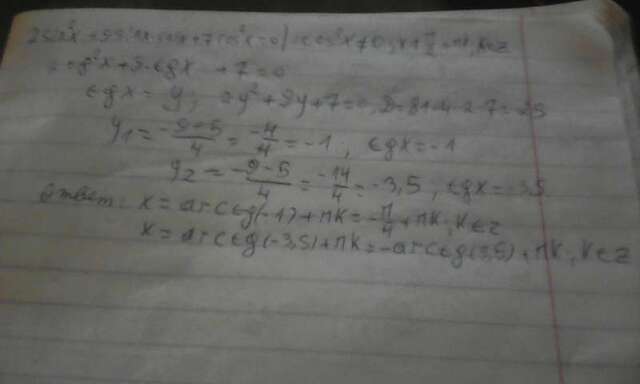 2sin²x + 9sinx cosx + 7cos²x = 0 | : cos²x ≠ 0, x ≠ π/2 + πk, k∈z
2tg²x + 9 tgx + 7 = 0
tgx = y; 2y² + 9y + 7 = 0, D = 81 - 4·2·7 = 25
y₁ = -9+5/4 = -4/4 = -1, tgx = -1
y₂ = -9-5/4 = -14/4 = -3,5, tgx = -3,5
Ответ: x = arctg(-1) + πk = -π/4 + πk, k∈z
x = arctg(-3,5) + πk = -arctg(3,5) + πk, k∈z